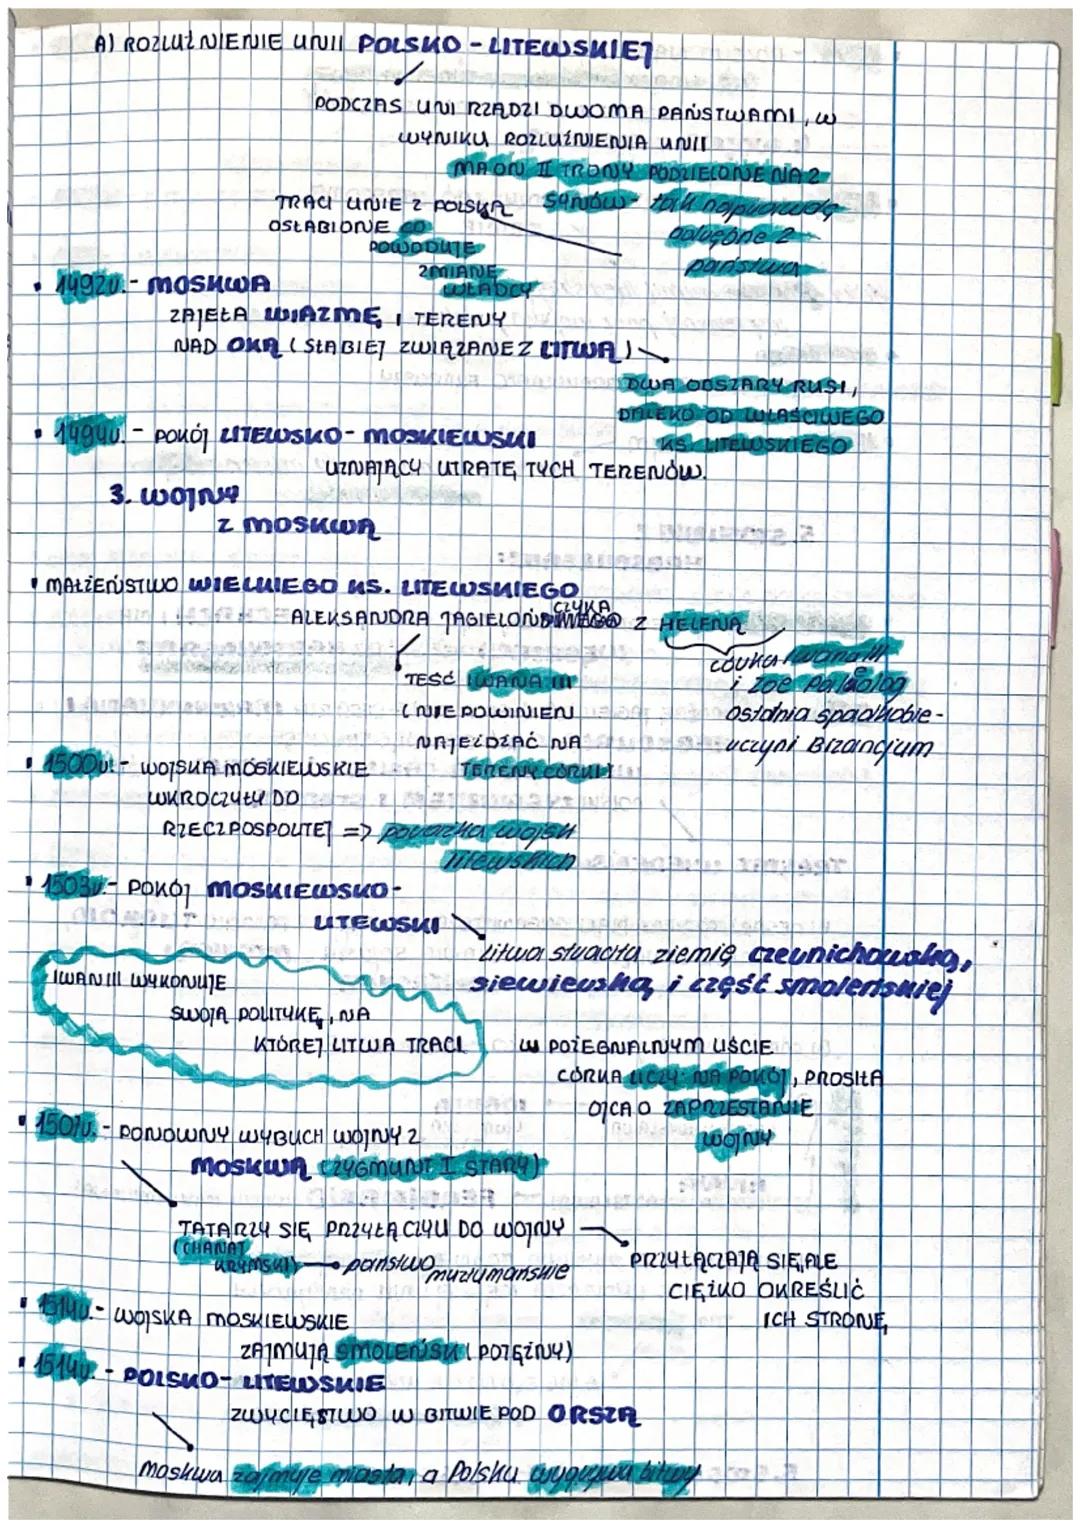 A) ROZLUŹNIENIE UNII POLSKO - LITEWSKIEJ
PODCZAS UNI RZĄDZI DWOMA PAŃSTWAMI, W
WYNIKU ROZLUŹNIENIA UNII
MA ON II TRONY PODZIELONE NA 2
SYNÓW - tak naprawdę
odrębne 2
państwa
TRACI UNIE Z POLSKĄ
OSŁABIONE CO
POWODUJE
ZMIANĘ
WŁADCY
• 1492r. - MOSKWA
ZAJĘŁA WIAZMĘ I TERENY
NAD OKĄ (SŁABIEJ ZWIĄZANE Z LITWĄ)
DWA OBSZARY RUSI,
DALEKO OD WŁAŚCIWEGO
KS. LITEWSKIEGO
• 1494r. - POKÓJ LITEWSKO - MOSKIEWSKI
UZNAJĄCY UTRATĘ TYCH TERENÓW.
3. WOJNY
Z MOSKWĄ
• MAŁŻEŃSTWO WIELKIEGO KS. LITEWSKIEGO
ALEKSANDRA JAGIELOŃCZYKA Z HELENĄ
córka Iwana III
i Zoe Paleolog
ostatnia spadkobie-
rczyni Bizancjum
TEŚĆ IWANA III
(NIE POWINIEN
NAJEŻDŻAĆ NA
TERENY CÓRKI)
• 1500r. - WOJSKA MOSKIEWSKIE
WKROCZYŁY DO
RZECZPOSPOLITEJ => porażka wojsk
litewskich
• 1503r. - POKÓJ MOSKIEWSKO-
LITEWSKI
Litwa straciła ziemię czernichowską,
siewierską i część smoleńskiej
IWAN III WYKONUJE
SWOJĄ POLITYKĘ, NA
KTÓREJ LITWA TRACI
W POŻEGNALNYM LIŚCIE
CÓRKA LICZY NA POKÓJ, PROSIŁA
OJCA O ZAPRZESTANIE
WOJNY
• 1507r. - PONOWNY WYBUCH WOJNY Z
MOSKWĄ (ZYGMUNT I STARY)
TATARZY SIĘ PRZYŁĄCZYLI DO WOJNY
(CHANAT
KRYMSKI) państwo muzułmańskie
PRZYŁĄCZAJĄ SIĘ, ALE
CIĘŻKO OKREŚLIĆ
ICH STRONĘ,
• 1514r. - WOJSKA MOSKIEWSKIE
ZAJMUJĄ SMOLEŃSK (POTĘŻNY)
• 1514r. - POLSKO - LITEWSKIE
ZWYCIĘSTWO W BITWIE POD ORSZĄ
Moskwa zajmuje miasta, a Polska wygrywa bitwy